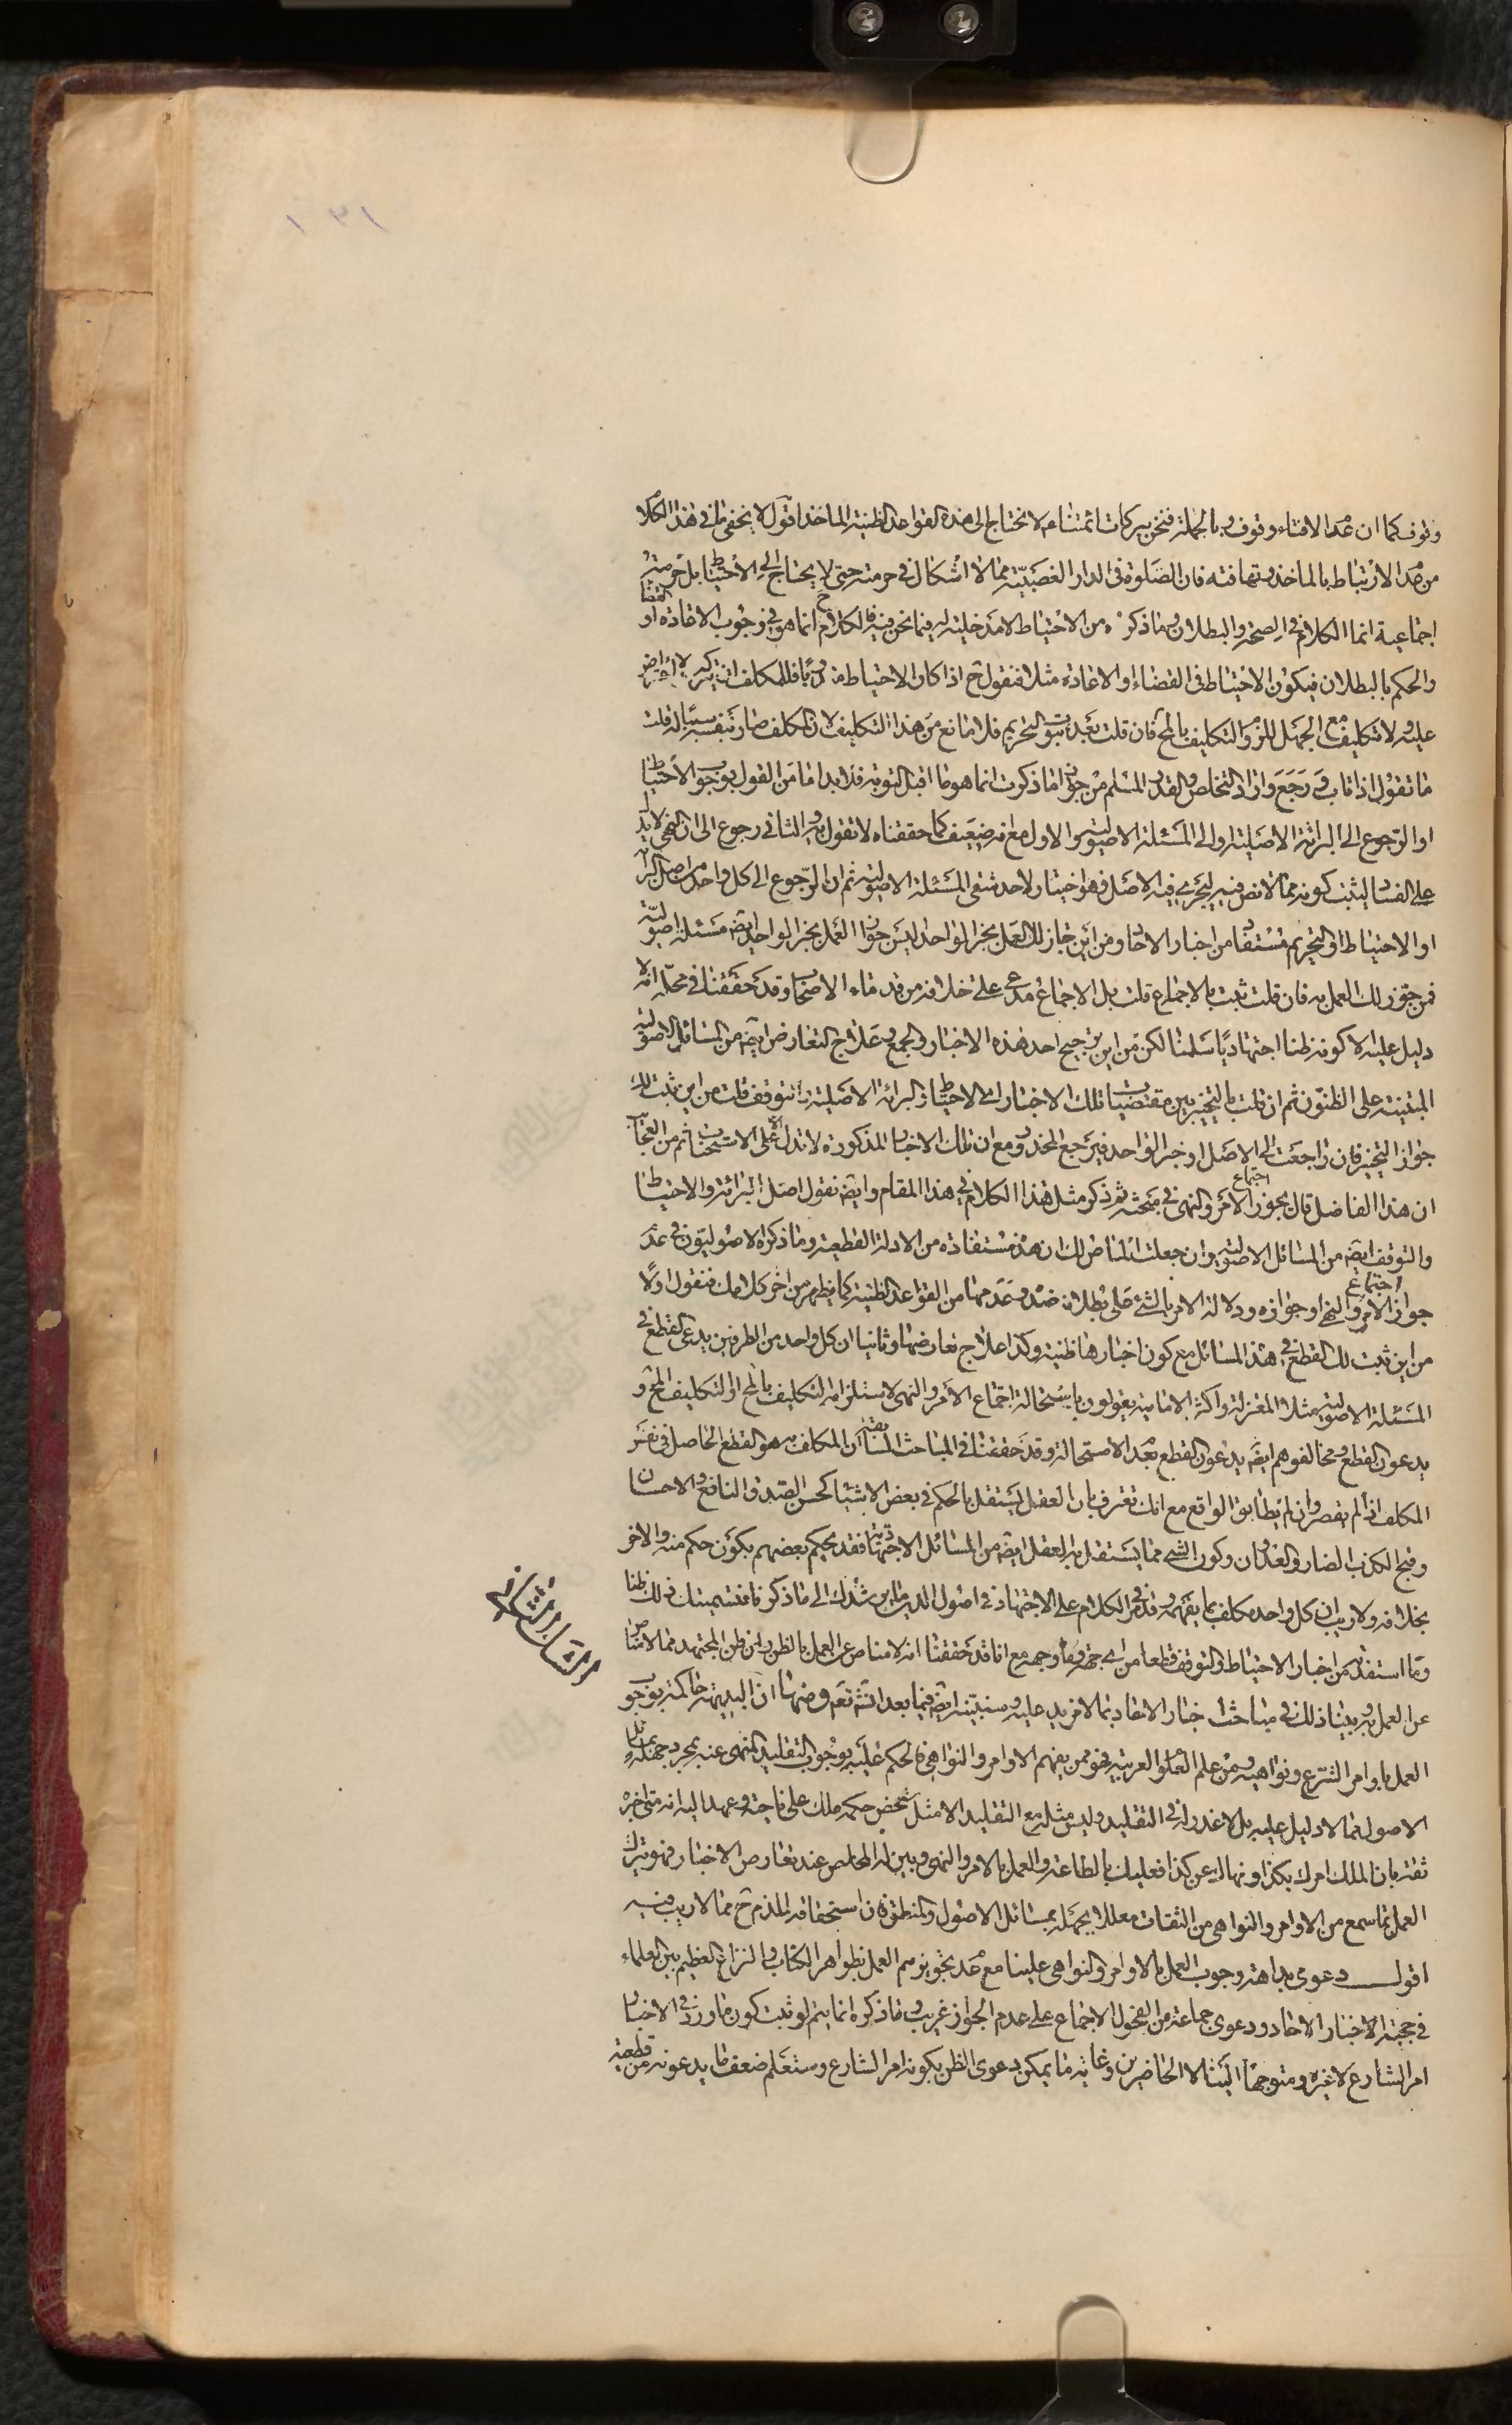 وقوف كما ان عدم الافتاء وقوف وبالجملة فنحن ببركات ائمتنا عم لا نحتاج الى هذه القواعد الظنية المأخذ اقول لا يخفى ما في هذا الكلا
من عدم الارتباط بالمأخذ وتهافته فان الصلوة في الدار الغصبية مما لا اشكال في حرمته حتى لا يحتاج الى الاحتياط بل حرمته
اجماعية انما الكلام في الصحة والبطلان وما ذكره من الاحتياط لا مدخلية له فيما نحن فيه فالكلام ح انما هو في وجوب الاعادة او القضا
والحكم بالبطلان فيكون الاحتياط في القضاء او الاعادة مثلا فنقول ح اذا كان الاحتياط مندوبا فللمكلف ان يتركه لا اعتراض
عليه ولا تكليف مع الجهل للزوم التكليف بالمح فان قلت بعد ثبوت التحريم فلا مانع من هذا التكليف لان المكلف صار بنفسه سببا له قلت
ما تقول اذا تاب ورجع واراد التخلص والقدر المسلم من جواز ما ذكرت انما هو ما قبل التوبة فلا بد اما من القول بوجوب الاحتيا
او الرجوع الى البرائة الاصلية او الى المسئلة الاصولية والاول مع انه ضعيف كما حققناه لا تقول به والثاني رجوع الى ان النهي لا يدل
على الفساد ليثبت كونه مما لا نص فيه ليجري فيه الاصل فهو اختيار لاحد شقي المسئلة الاصولية ثم ان الرجوع الى كل واحد من اصل البرائة
او الاحتياط او التحريم مستفاد من اخبار الاحاد ومن اين جاز لك العمل بخبر الواحد اليس جواز العمل بخبر الواحد ايضا مسئلة اصولية
فمن جوز لك العمل به فان قلت ثبت بالاجماع قلت بل الاجماع مدعى على خلافه من قدماء الاصحاب وقد حققنا في محله انه لا
دليل عليه الا كونه ظنا اجتهاديا سلمنا لكن من اين ترجيح احد هذه الاخبار والجمع وعلاج التعارض ايضا من المسائل الاصولية
المبتنية على الظنون ثم ان قلت بالتخيير بين مقتضيات تلك الاخبار اي الاحتياط والبرائة الاصلية او تتوقف قلت من اين ثبت لك
جواز التخيير فان راجعت الى الاصل او خبر الواحد فيرجع المحذور مع ان تلك الاخبار المذكورة لا تدل الا على الاستحباب ثم من العجائب
ان هذا الفاضل قال بجواز اجتماع الامر والنهي في مبحثه ثم ذكر مثل هذا الكلام في هذا المقام وايضا نقول اصل البرائة والاحتياط
والتوقف ايضا من المسائل الاصولية وان جعلت المناص لك ان هذه مستفادة من الادلة القطعية وما ذكره الاصوليون في عدم
جواز اجتماع الامر والنهي او جوازه ودلالة الامر بالشئ على بطلان ضده وعدمها من القواعد الظنية كما يظهر من اخر كلامك فنقول اولا
من اين ثبت لك القطع في هذا المسائل مع كون اخبارها ظنية وكذا علاج تعارضها وثانيا ان كل واحد من الطرفين يدعي القطع في
المسئلة الاصولية مثلا المعتزلة واكثر الامامية يقولون باستحالة اجتماع الامر والنهي لاستلزامه التكليف بالمح او التكليف المح و
يدعون القطع ومخالفوهم ايضا يدعون القطع بعدم الاستحالة وقد حققنا في المباحث السابقة ان المكلف به هو القطع الحاصل في نفس
المكلف اذا لم يقصر وان لم يطابق الواقع مع انك تعترف بان العقل يستقل بالحكم في بعض الاشياء كحسن الصدق النافع والاحسان
وقبح الكذب الضار والعدوان وكون الشئ مما يستقل به العقل ايضا من المسائل الاجتهادية فقد يحكم بعضهم بكون حكم منه والاخر
بخلافه ولا ريب ان كل واحد مكلف بما يفهمه وقد مر الكلام على الاجتهاد في اصول الدين ما يرشدك الى ما ذكر فما تسميتك ذلك ظنا
وما استفدته من اخبار الاحتياط والتوقف قطعا من اي جهة وما وجهه مع انا قد حققنا انه لا مناص عن العمل بالظن وان ظن المجتهد مما لا مناص
عن العمل به وبينا ذلك في مباحث اخبار الاحاد بما لا مزيد عليه وسنبينه ايضا فيما بعد انش تعم ومنها ان البديهة حاكمة بوجو
العمل باوامر الشرع ونواهيه ومن علم العلوم العربية فهو ممن يفهم الاوامر والنواهي فالحكم عليه بوجوب التقليد المنهي عنه بمجرد جهله بمسائل
الاصول مما لا دليل عليه بل لا عذر له في التقليد وليس مثله مع التقليد الا مثل شخص حكمه ملك على ناحية وعهد اليه انه متى اخبره
ثقة بان الملك امرك بكذا او نهاك عن كذا فعليك بالطاعة والعمل بالامر والنهي وبين له المخلص عند تعارض الاخبار فهو يترك
العمل بما سمع من الاوامر والنواهي من الثقات معللا بجهله بمسائل الاصول والمنطق فان استحقاقه للذم ح مما لا ريب فيه
اقول دعوى بداهة وجوب العمل بالاوامر والنواهي علينا مع عدم تجويزهم العمل بظواهر الكتاب والنزاع العظيم بين العلماء
في حجية الاخبار الاحاد ودعوى جماعة من الفحول الاجماع على عدم الجواز غريب وما ذكره انما يتم لو ثبت كون ما ورد في الاخبار
امر الشارع لا غيره ومتوجها الينا لا الحاضرين وغاية ما يمكن دعوى الظن بكونه امر الشارع وستعلم ضعف ما يدعونه من قطعية
الشك الثاني
١٣١